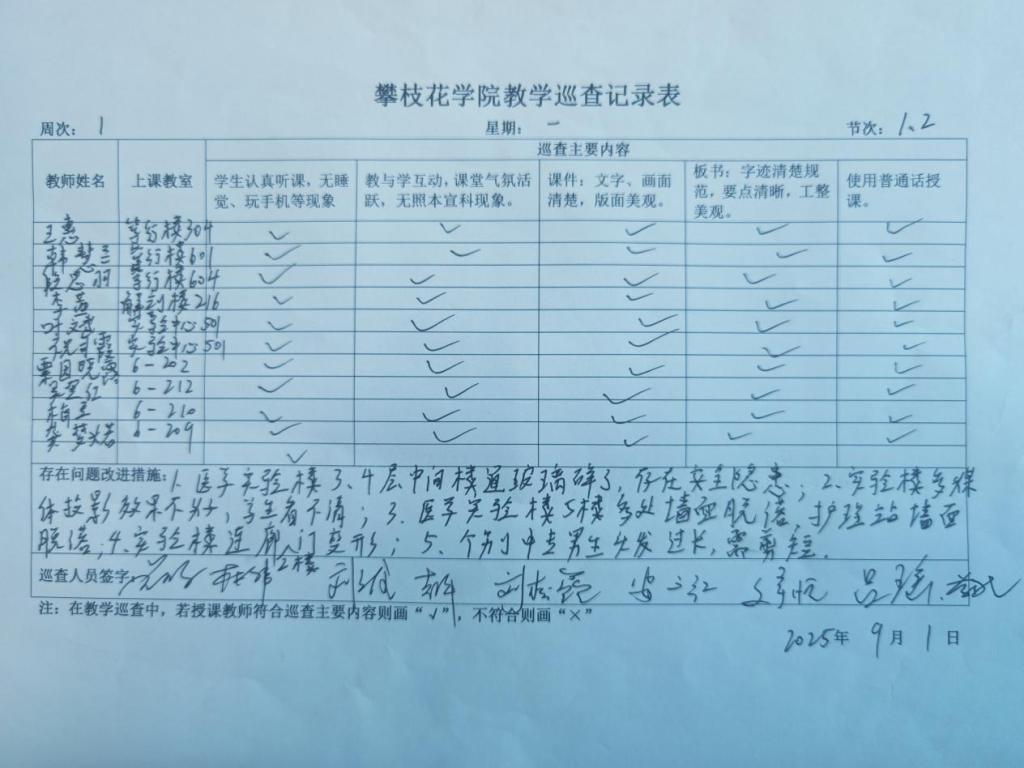 攀枝花学院教学巡查记录表
周次: 1 星期: 一 节次: 1、2
教师姓名 上课教室 巡查主要内容
学生认真听课，无睡觉、玩手机等现象 教与学互动，课堂气氛活跃，无照本宣科现象。 课件：文字、画面清楚，版面美观。 板书：字迹清楚规范，要点清晰，工整美观。 使用普通话授课。
王惠 笃行楼304 ✓ ✓ ✓ ✓ ✓
韩慧兰 笃行楼601 ✓ ✓ ✓ ✓ ✓
思羽 笃行楼604 ✓ ✓ ✓ ✓ ✓
李茜 解剖楼216 ✓ ✓ ✓ ✓ ✓
叶文斌 实验中心501 ✓ ✓ ✓ ✓ ✓
霞 实验中心501 ✓ ✓ ✓ ✓ ✓
晓露 6-202 ✓ ✓ ✓ ✓ ✓
红 6-212 ✓ ✓ ✓ ✓ ✓
6-210 ✓ ✓ ✓ ✓ ✓
龚梦 6-209 ✓ ✓ ✓ ✓ ✓
✓
存在问题改进措施：1、医学实验楼3、4层中间楼道玻璃碎了，存在安全隐患；2、实验楼多媒
体投影效果不好，学生看不清；3、医学实验楼5楼多处墙面脱落，护理站墙面
脱落；4、实验楼连廊入门变形；5、个别中专男生头发过长，需剪短。
2楼
巡查人员签字
注：在教学巡查中，若授课教师符合巡查主要内容则画“√”，不符合则画“×”
2025年 9月 1日